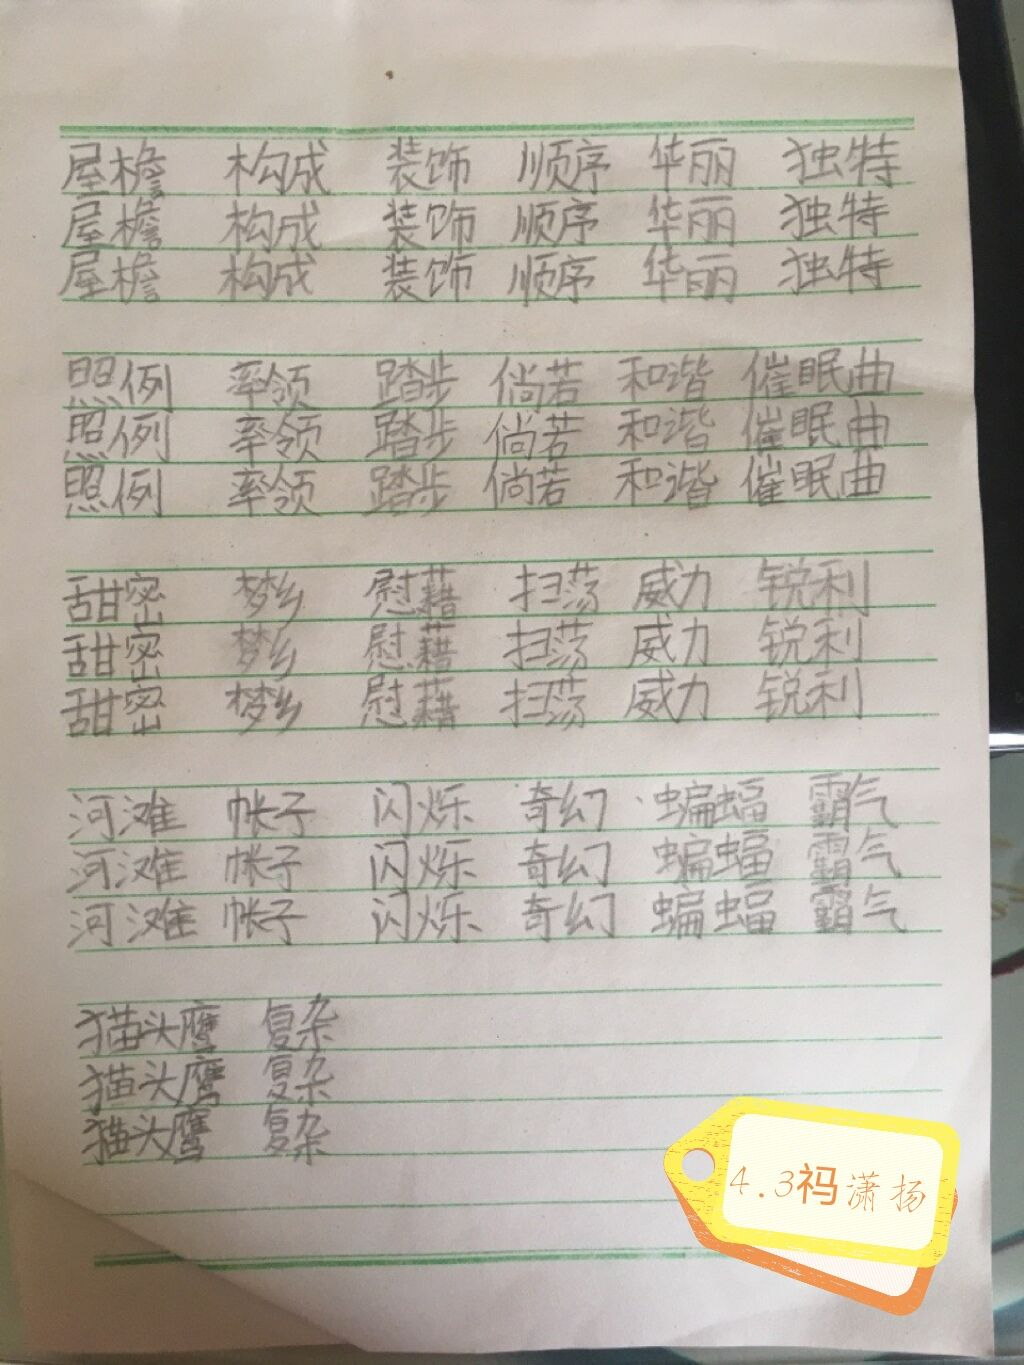 屋檐 构成 装饰 顺序 华丽 独特
屋檐 构成 装饰 顺序 华丽 独特
屋檐 构成 装饰 顺序 华丽 独特
照例 率领 踏步 倘若 和谐 催眠曲
照例 率领 踏步 倘若 和谐 催眠曲
照例 率领 踏步 倘若 和谐 催眠曲
甜密 梦乡 慰藉 扫荡 威力 锐利
甜密 梦乡 慰藉 扫荡 威力 锐利
甜密 梦乡 慰藉 扫荡 威力 锐利
河滩 帐子 闪烁 奇幻 蝙蝠 霸气
河滩 帐子 闪烁 奇幻 蝙蝠 霸气
河滩 帐子 闪烁 奇幻 蝙蝠 霸气
猫头鹰 复杂
猫头鹰 复杂
猫头鹰 复杂
4.3祃潇扬